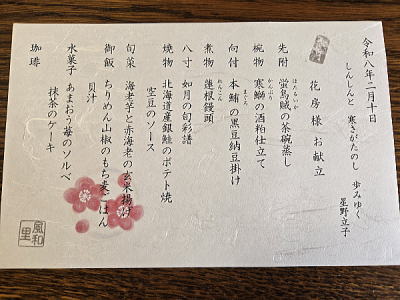 令和八年二月十日
しんしんと 寒さがたのし 歩みゆく
星野立子
花房様 お献立
先附 蛍烏賊の茶碗蒸し
ほたるいか
椀物 寒鰤の酒粕仕立て
かんぶり
向付 本鮪の黒豆納豆掛け
まぐろ
煮物 蓮根饅頭
れんこん
八寸 如月の旬彩譜
焼物 北海道産銀鮭のポテト焼
空豆のソース
旬菜 海老芋と赤海老の玄米揚げ
御飯 ちりめん山椒のもち麦ごはん
貝汁
水菓子 あまおう苺のソルベ
抹茶のケーキ
珈琲
風和里